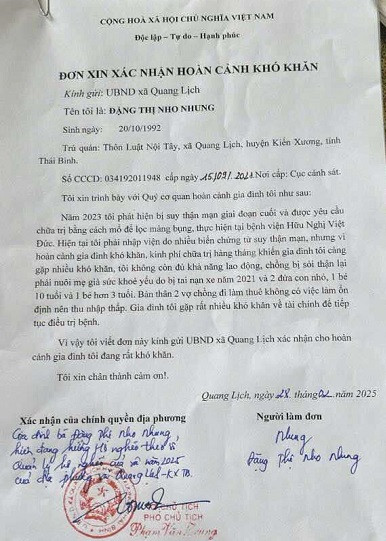 CỘNG HOÀ XÃ HỘI CHỦ NGHĨA VIỆT NAM
Độc lập – Tự do – Hạnh phúc
ĐƠN XIN XÁC NHẬN HOÀN CẢNH KHÓ KHĂN
Kính gửi: UBND xã Quang Lịch
Tên tôi là: ĐẶNG THỊ NHO NHUNG
Sinh ngày: 20/10/1992
Trú quán: Thôn Luật Nội Tây, xã Quang Lịch, huyện Kiến Xương, tỉnh
Thái Bình.
Số CCCD: 034192011948 cấp ngày 15/09/2021 Nơi cấp: Cục cảnh sát.
Tôi xin trình bày với Quý cơ quan hoàn cảnh gia đình tôi như sau:
Năm 2023 tôi phát hiện bị suy thận mạn giai đoạn cuối và được yêu cầu
chữa trị bằng cách mổ để lọc màng bụng, thực hiện tại bệnh viện Hữu Nghị Việt
Đức. Hiện tại tôi phải nhập viện do nhiều biến chứng từ suy thận mạn, nhưng vì
hoàn cảnh gia đình khó khăn, kinh phí chữa trị hàng tháng khiến gia đình tôi càng
gặp nhiều khó khăn, tôi không còn đủ khả năng lao động, chồng bị sỏi thận lại
phải nuôi mẹ già sức khoẻ yếu do bị tai nạn xe năm 2021 và 2 đứa con nhỏ, 1 bé
10 tuổi và 1 bé hơn 3 tuổi. Bản thân 2 vợ chồng đi làm thuê không có việc làm ổn
định nên thu nhập thấp. Gia đình tôi gặp rất nhiều khó khăn về tài chính để tiếp
tục điều trị bệnh.
Vì vậy tôi viết đơn này kính gửi UBND xã Quang Lịch xác nhận cho hoàn
cảnh gia đình tôi đang rất khó khăn.
Tôi xin chân thành cảm ơn!.
Quang Lịch, ngày 28 tháng 02 năm 2025
Xác nhận của chính quyền địa phương
Người làm đơn
Gia đình bà Đặng Thị Nho Nhung
hiện đang hưởng Hộ nghèo theo
Quản lý hộ nghèo của xã năm 2025
của địa phương xã Quang Lịch - KX TB.
Nhung
Đặng Thị Nho Nhung
CHỦ TỊCH
PHÓ CHỦ TỊCH
Phạm Văn